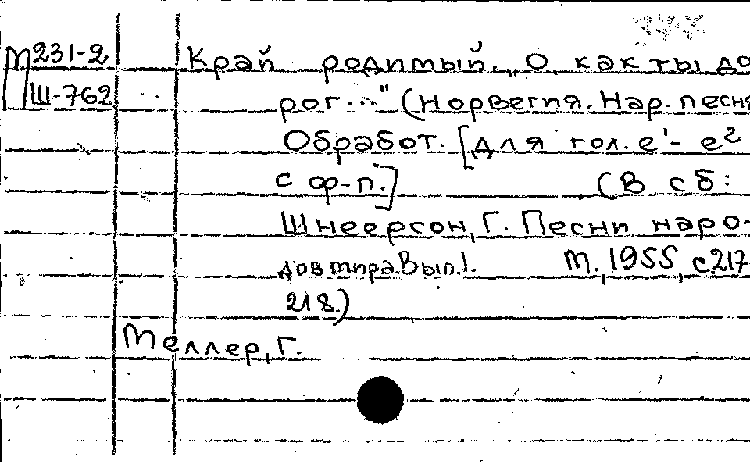 М 231-2
Ш-762
Край родимый. „О, как ты до
рог..." (Норвегия. Нар. песня
Обработ. [Для гол. e¹- e²
с ф-п.] (В сб:
Шнеерсон, Г. Песни наро-
дов мира. Вып.1. М., 1955, с.217
218.)
Меллер, Г.